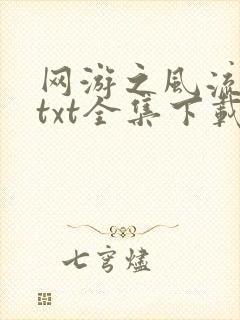 网游之风流
txt全集下载
七穹烬